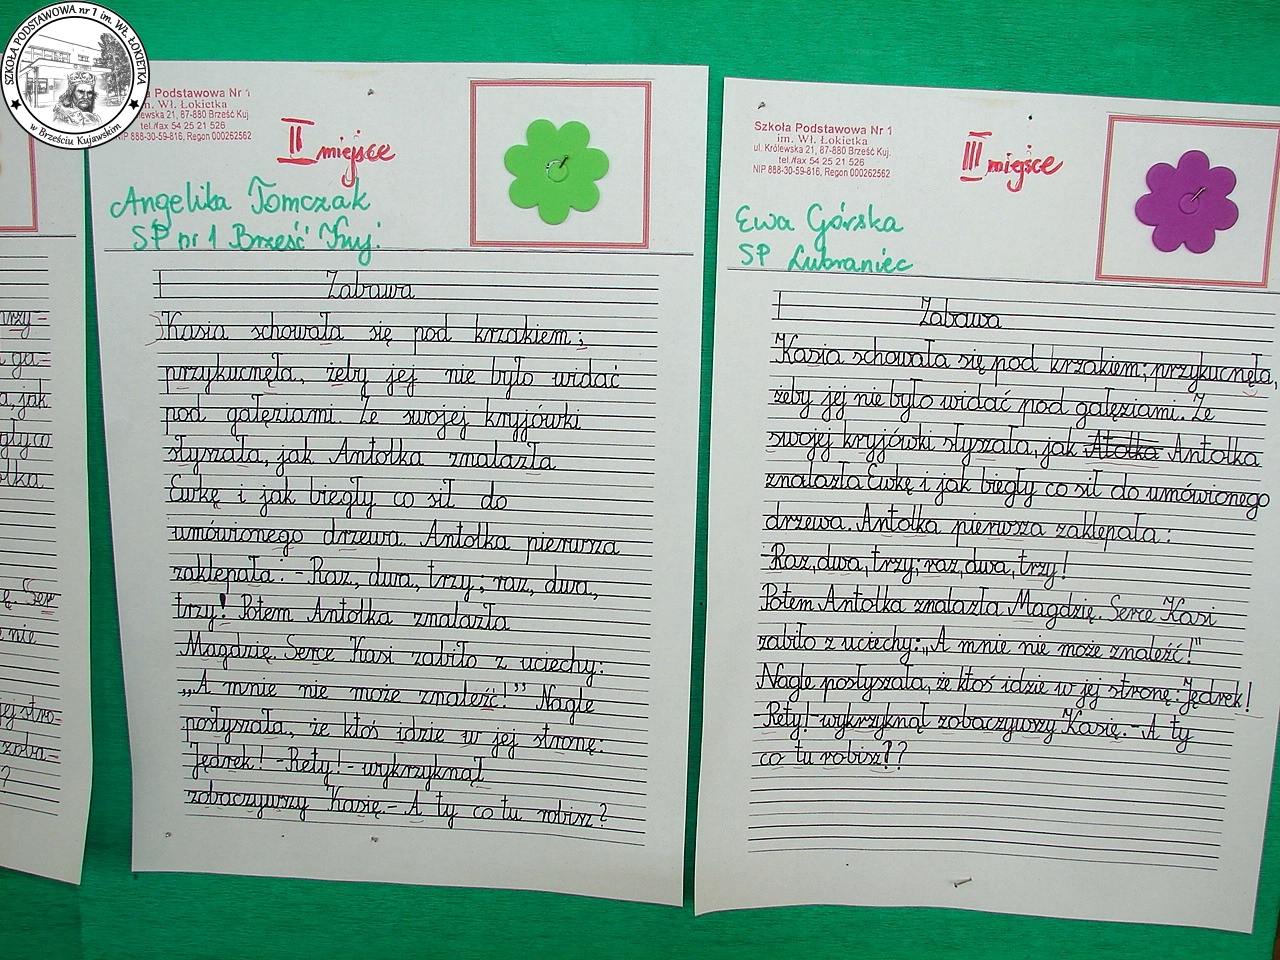 SZKOŁA PODSTAWOWA nr 1 im. WŁ. ŁOKIETKA
w Brześciu Kujawskim
Podstawowa Nr 1
im. Wł. Łokietka
21, 87-880 Brześć Kuj.
tel./fax 54 25 21 526
NIP 888-30-59-816, Regon 000262562
II miejsce
Angelika Tomczak
SP nr 1 Brześć Kuj.
Zabawa
Kasia schowała się pod krzakiem;
przykucnęła, żeby jej nie było widać
pod gałęziami. Ze swojej kryjówki
słyszała, jak Antolka znalazła
Ewkę i jak biegły co sił do
umówionego drzewa. Antolka pierwsza
zaklepała: - Raz, dwa, trzy; raz, dwa,
trzy! Potem Antolka znalazła
Magdzię. Serce Kasi zabiło z uciechy:
„A mnie nie może znaleźć!” Nagle
posłyszała, że ktoś idzie w jej stronę:
Jędrek! -Rety!- wykrzyknął
zobaczywszy Kasię.- A ty co tu robisz?
Szkoła Podstawowa Nr 1
im. Wł. Łokietka
ul. Królewska 21, 87-880 Brześć Kuj.
tel./fax 54 25 21 526
NIP 888-30-59-816, Regon 000262562
III miejsce
Ewa Górska
SP Lubraniec
Zabawa
Kasia schowała się pod krzakiem; przykucnęła,
żeby jej nie było widać pod gałęziami. Ze
swojej kryjówki słyszała, jak Atolka Antolka
znalazła Ewkę i jak biegły co sił do umówionego
drzewa. Antolka pierwsza zaklepała:
-Raz, dwa, trzy; raz, dwa, trzy!
Potem Antolka znalazła Magdzię. Serce Kasi
zabiło z uciechy: „A mnie nie może znaleźć!"
Nagle posłyszała, że ktoś idzie w jej stronę: Jędrek!
-Rety! wykrzyknął zobaczywszy Kasię. -A ty
co tu robisz??